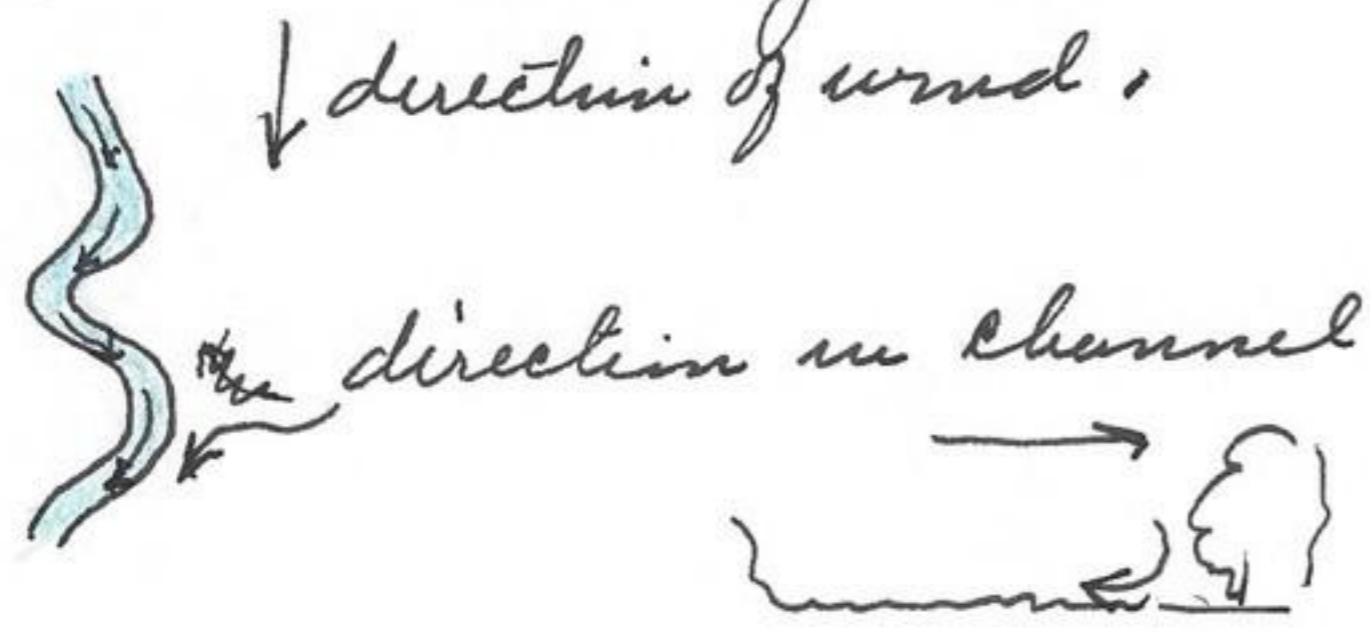 direction of wind.
direction in channel